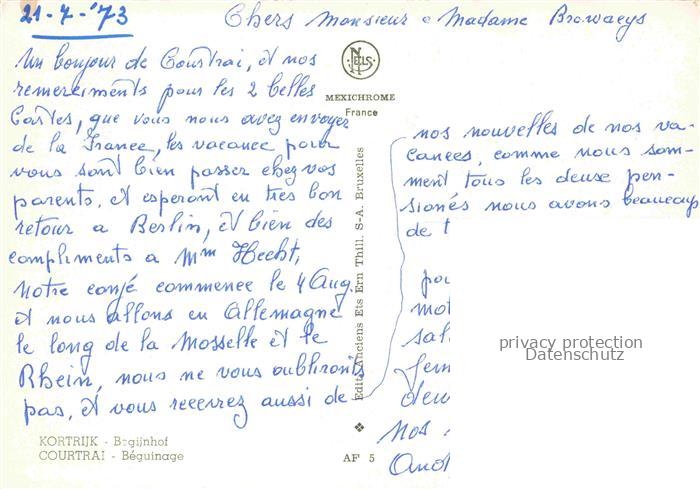 21-7-'73
Chers Monsieur e Madame Browaeys
Un bonjour de Courtrai, et nos
remerciments pour les 2 belles
Cartes, que vous nous avez envoyer
de la France, les vacance pour
vous sont bien passer chez vos
parents, et esperont en très bon
retour a Berlin, et bien des
compliments a Mm Hecht,
Notre conjé commence le 4 Aug.
et nous allons en Allemagne
le long de la Mosselle et le
Rhein, nous ne vous oublironts
pas, et vous recevrez aussi de
nos nouvelles de nos va-
cances, comme nous som-
ment tous les deux pen-
sionés nous avons beaucoup
de t
pou
mot
sal
fem
deu
Nos
And
NELS
MEXICHROME
France
Edit. Anciens Ets Ern Thill. S-A. Bruxelles
KORTRIJK - Begijnhof
COURTRAI - Béguinage
AF 5
privacy protection
Datenschutz